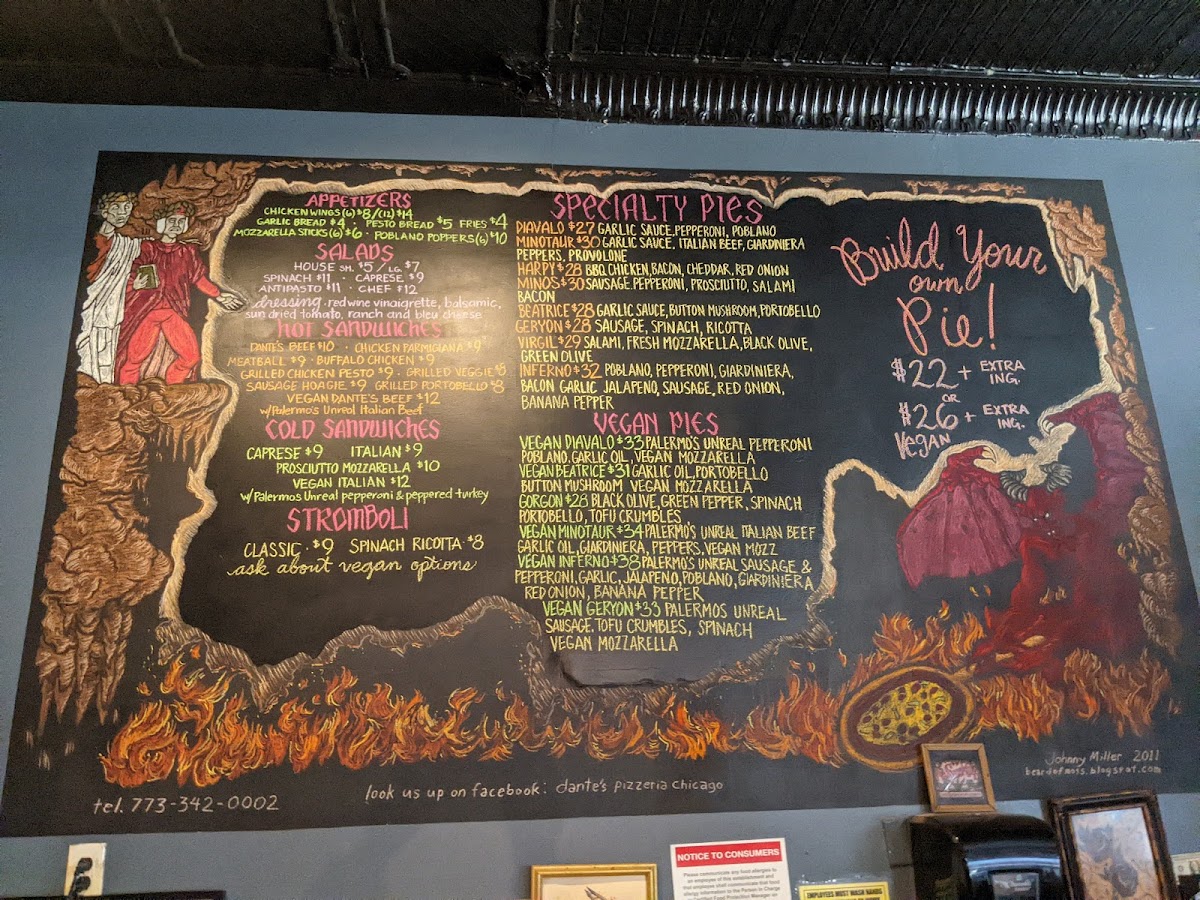 APPETIZERS
CHICKEN WINGS (6) $8/(12) $14
GARLIC BREAD $4 · PESTO BREAD $5 FRIES $4
MOZZARELLA STICKS (6) $6 · POBLANO POPPERS (6) $10
SALADS
HOUSE SM. $5 / LG. $7
SPINACH $11 · CAPRESE $9
ANTIPASTO $11 · CHEF $12
dressing: red wine vinaigrette, balsamic,
sun dried tomato, ranch and bleu cheese
HOT SANDWICHES
DANTE'S BEEF $10 · CHICKEN PARMIGIANA $9
MEATBALL $9 · BUFFALO CHICKEN $9
GRILLED CHICKEN PESTO $9 · GRILLED VEGGIE $8
SAUSAGE HOAGIE $9 GRILLED PORTOBELLO $8
VEGAN DANTE'S BEEF $12
w/Palermo's Unreal Italian Beef
COLD SANDWICHES
CAPRESE $9 ITALIAN $9
PROSCIUTTO MOZZARELLA $10
VEGAN ITALIAN $12
w/Palermos Unreal pepperoni & peppered turkey
STROMBOLI
CLASSIC · $9 SPINACH RICOTTA · $8
ask about vegan options
SPECIALTY PIES
DIAVALO $27 GARLIC SAUCE, PEPPERONI, POBLANO
MINOTAUR $30 GARLIC SAUCE, ITALIAN BEEF, GIARDINIERA
PEPPERS, PROVOLONE
HARPY $28 BBQ, CHICKEN, BACON, CHEDDAR, RED ONION
MINOS $30 SAUSAGE, PEPPERONI, PROSCIUTTO, SALAMI
BACON
BEATRICE $28 GARLIC SAUCE, BUTTON MUSHROOM, PORTOBELLO
GERYON $28 SAUSAGE, SPINACH, RICOTTA
VIRGIL $29 SALAMI, FRESH MOZZARELLA, BLACK OLIVE,
GREEN OLIVE
INFERNO $32 POBLANO, PEPPERONI, GIARDINIERA,
BACON GARLIC JALAPENO, SAUSAGE, RED ONION,
BANANA PEPPER
VEGAN PIES
VEGAN DIAVALO $33 PALERMO'S UNREAL PEPPERONI
POBLANO, GARLIC OIL, VEGAN MOZZARELLA
VEGAN BEATRICE $31 GARLIC OIL, PORTOBELLO
BUTTON MUSHROOM VEGAN MOZZARELLA
GORGON $28 BLACK OLIVE, GREEN PEPPER, SPINACH
PORTOBELLO, TOFU CRUMBLES
VEGAN MINOTAUR $34 PALERMO'S UNREAL ITALIAN BEEF
GARLIC OIL, GIARDINIERA, PEPPERS, VEGAN MOZZ
VEGAN INFERNO $38 PALERMO'S UNREAL SAUSAGE &
PEPPERONI, GARLIC, JALAPENO, POBLANO, GIARDINIERA
RED ONION, BANANA PEPPER
VEGAN GERYON $33 PALERMOS UNREAL
SAUSAGE, TOFU CRUMBLES, SPINACH
VEGAN MOZZARELLA
Build Your
own
Pie!
$22 + EXTRA ING.
OR
$26 + EXTRA ING.
Vegan
Johnny Miller 2011
beardofmoss.blogspot.com
tel. 773-342-0002
look us up on facebook: dante's pizzeria chicago
NOTICE TO CONSUMERS
Please communicate any food allergies to
an employee of this establishment and
that employee shall communicate that food
allergy information to the Person in Charge
EMPLOYEES MUST WASH HANDS